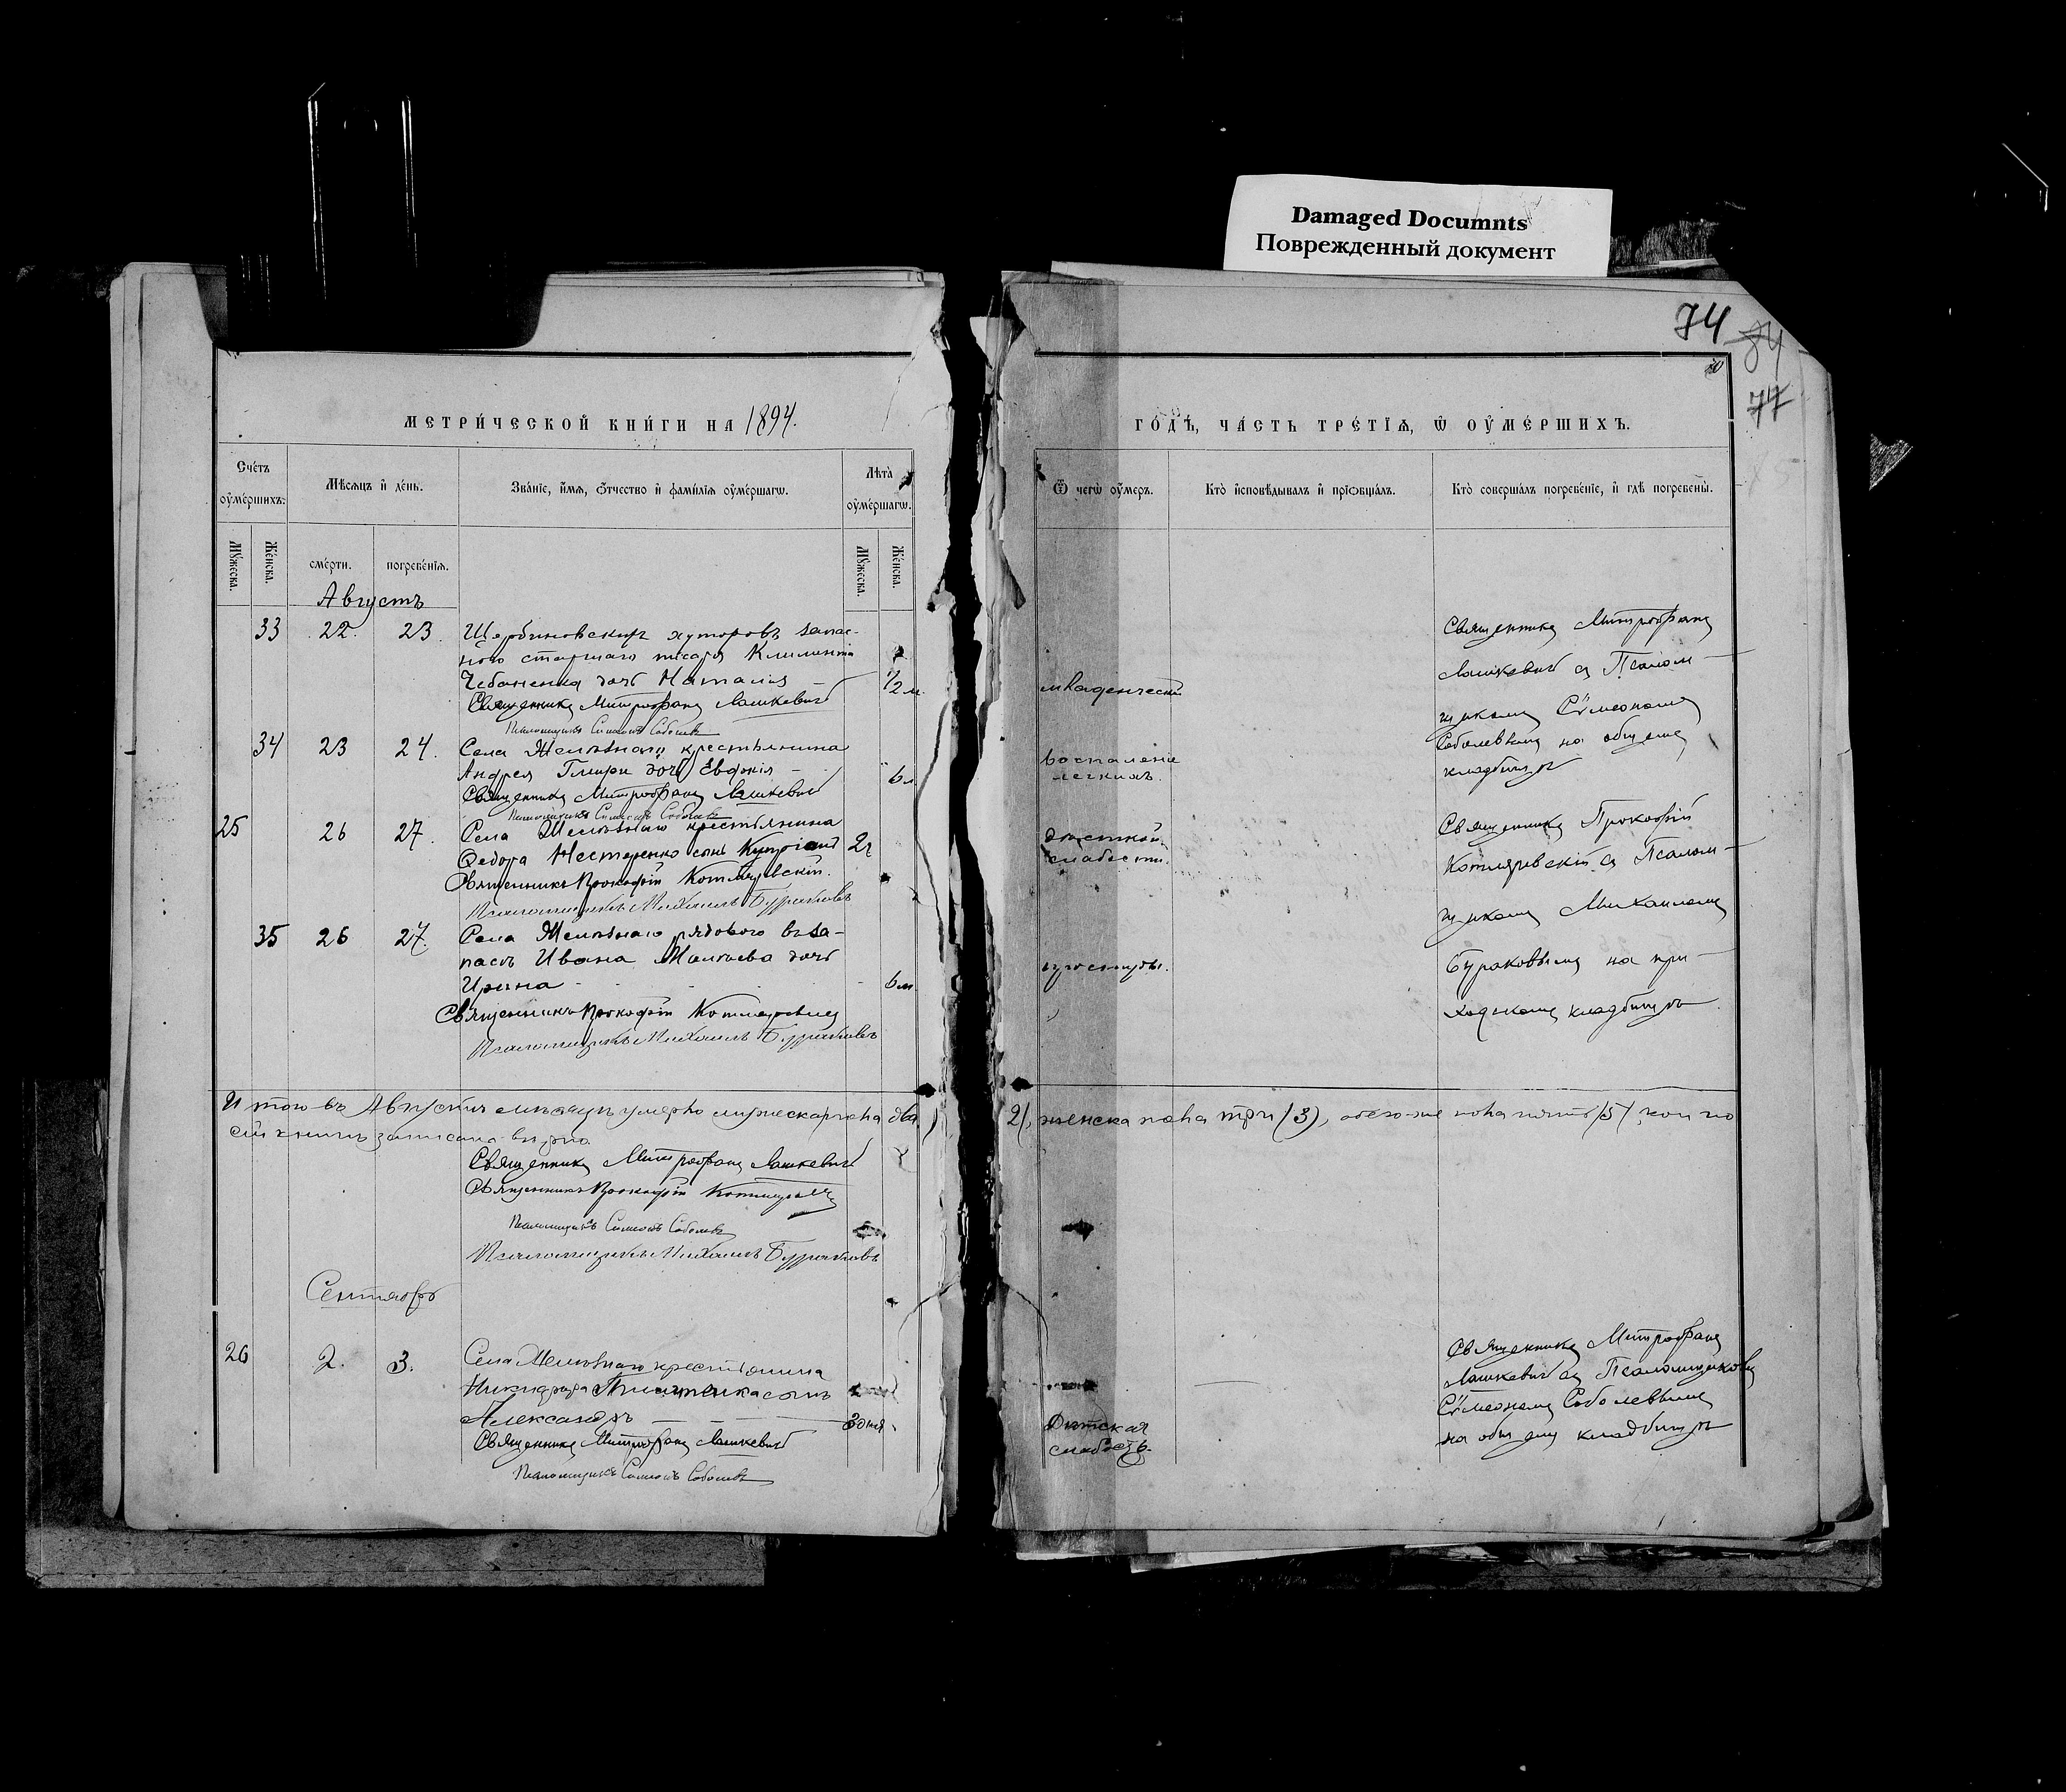 Damaged Documnts
Поврежденный документ
74
84
77
МЕТРИ́ЧЕСКОЙ КНИ́ГИ НА 1894.
ГО́ДѢ, ЧА́СТЬ ТРЕ́ТІѦ, Ѿ ОУ҆МЕ́РШИХЪ.
Сче́тъ оу҆ме́ршихъ.
Мѣ́сѧцъ и҆ де́нь.
Зва́нїе, и҆́мѧ, ѻ҆́тчество и҆ фами́лїѧ оу҆ме́ршагѡ.
Лѣ́та оу҆ме́ршагѡ.
Ѿ чегѡ̀ оу҆́меръ.
Кто̀ и҆сповѣ́дывалъ и҆ прїѡбща́лъ.
Кто̀ соверша́лъ погребе́нїе, и҆ гдѣ̀ погребены̀.
Мꙋ́жеска.
Же́нска.
сме́рти.
погребе́нїѧ.
Мꙋ́жеска.
Же́нска.
Августъ
33 22. 23. Щербиновскихъ хуторовъ запас-
ного старшаго писаря Климента
Чебаненка дочь Наталія 1/2 м.
Священникъ Митрофанъ Лашкевичъ
Псаломщикъ Симеонъ Соболевъ
младенческой
Священникъ Митрофанъ
Лашкевичъ съ Псалом-
щикомъ Сѵмеономъ
Соболевымъ на общемъ
кладбищѣ
34 23 24. Села Желѣзнаго крестьянина
Андрея Гмыри дочь Евфимія 6 л.
Священникъ Митрофанъ Лашкевичъ
Псаломщикъ Симеонъ Соболевъ
воспаленіе
легкихъ.
25 26 27. Села Желѣзнаго крестьянина
Ѳедора Нестеренко сынъ Купріанъ 2 г
Священникъ Прокофій Котляревскій.
Псаломщикъ Михаилъ Бураковъ
дѣтской
слабости.
Священникъ Прокофій
Котляревскій съ Псалом-
щикомъ Михаиломъ
Бураковымъ на при-
ходскомъ кладбищѣ
35 26 27. Села Желѣзнаго рядового въ за-
пасѣ Ивана дочь
Ирина 6 м.
Священникъ Прокофій Котляревскій
Псаломщикъ Михаилъ Бураковъ
простуды.
Итого въ Августѣ мѣсяцѣ умерло мужеска пола два (2), женска пола три (3), обоего же пола пять (5), кои по
сей книгѣ записаны вѣрно.
Священникъ Митрофанъ Лашкевичъ
Священникъ Прокофій Котляревскій
Псаломщикъ Симеонъ Соболевъ
Псаломщикъ Михаилъ Бураковъ
Сентябрь
26 2. 3. Села Желѣзнаго крестьянина
Никандра сынъ
Александръ 3 дня.
Священникъ Митрофанъ Лашкевичъ
Псаломщикъ Симеонъ Соболевъ
Дѣтская
слабость.
Священникъ Митрофанъ
Лашкевичъ съ Псаломщикомъ
Сѵмеономъ Соболевымъ
на общемъ кладбищѣ